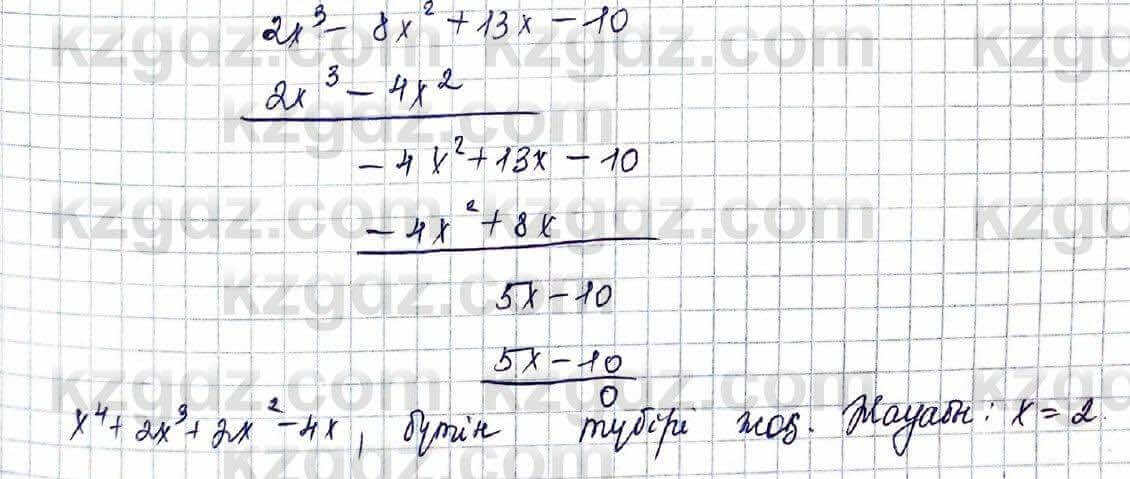 2x³ − 8x² + 13x − 10
2x³ − 4x²
− 4x² + 13x − 10
− 4x² + 8x
5x − 10
5x − 10
0
x⁴ + 2x³ + 2x² − 4x, бүтін түбірі жоқ. Жауабы: x = 2.
kzgdz.com